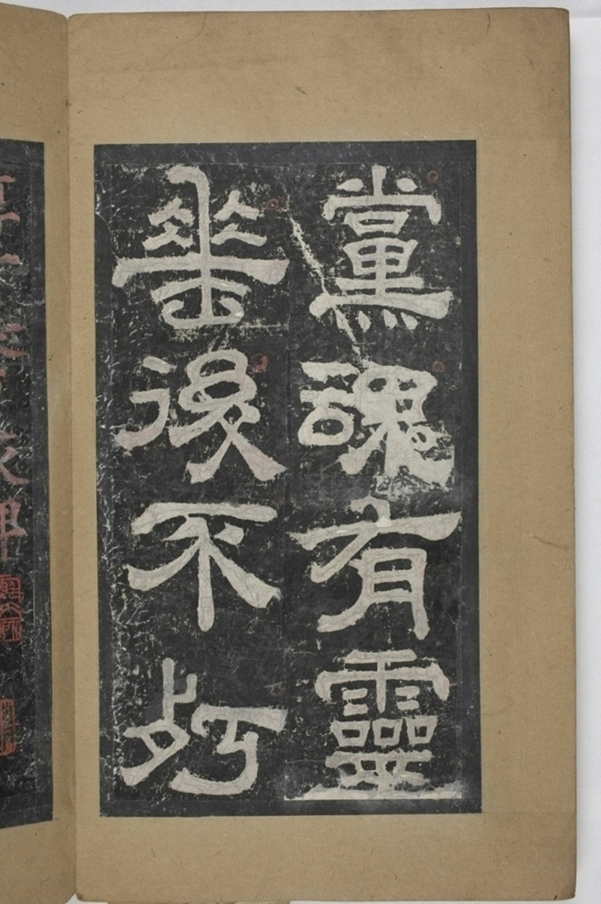 黨魂有靈
垂後不㱙